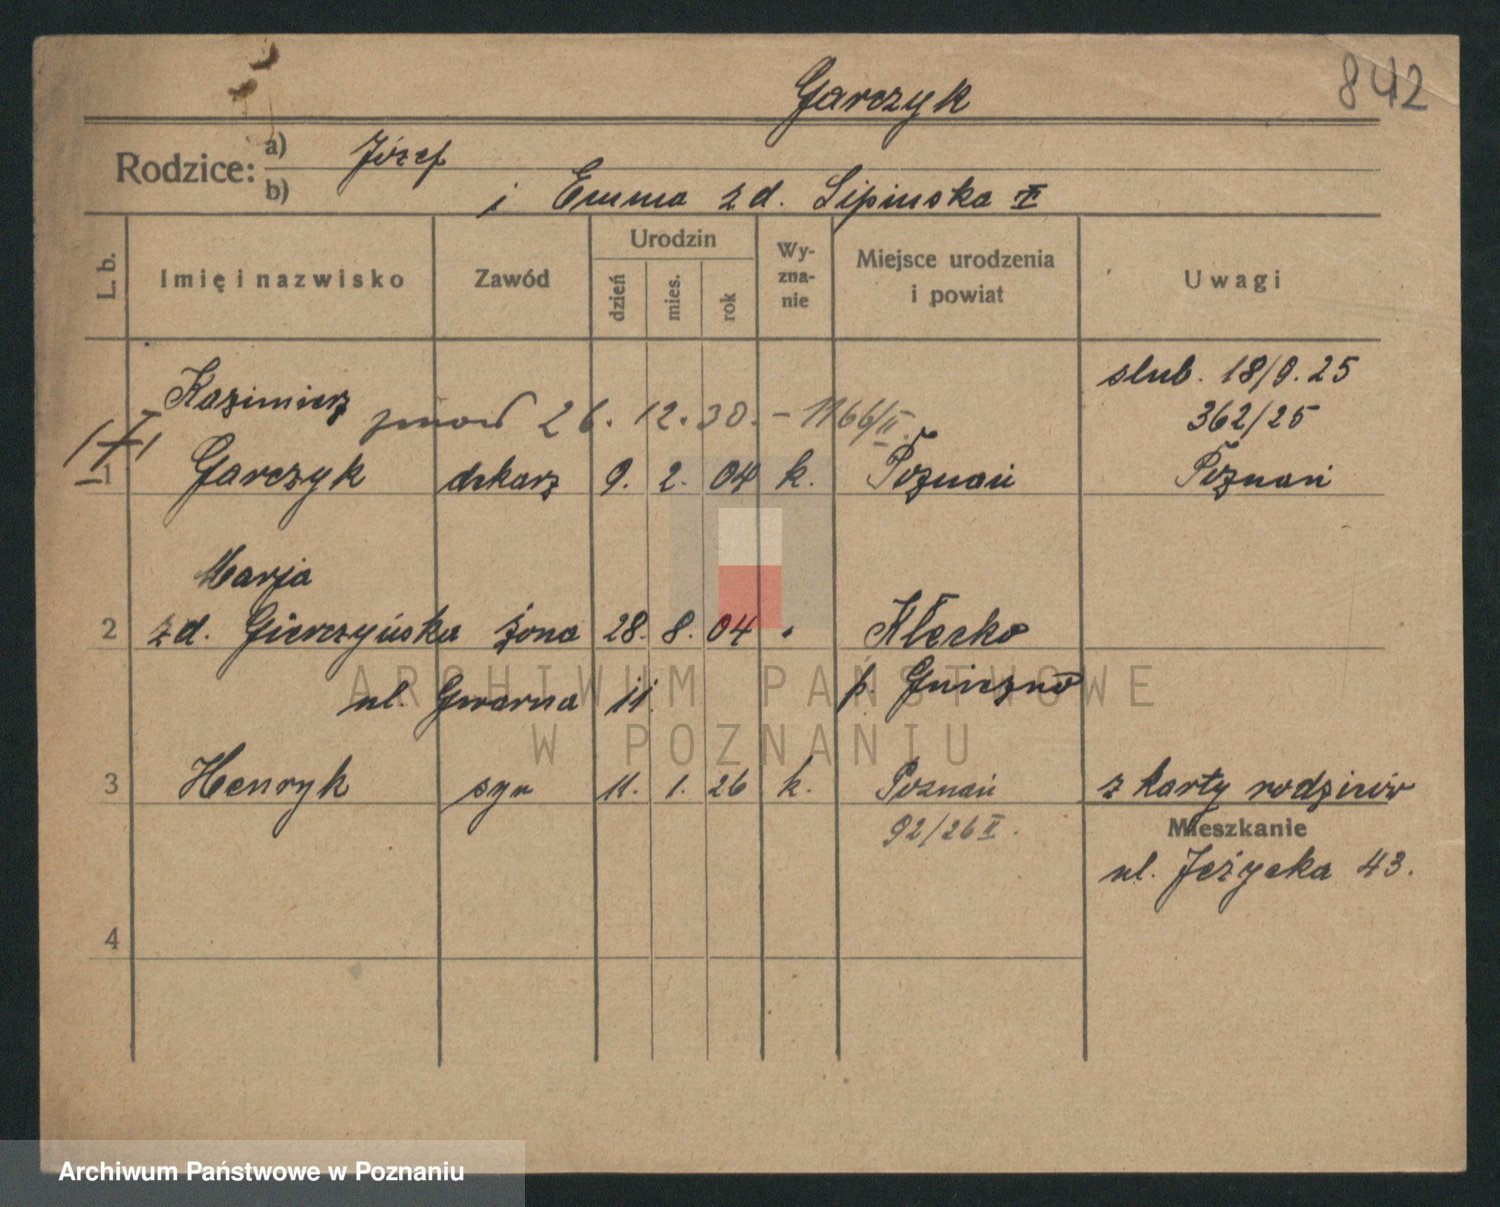 842
Garczyk
Rodzice: a) Józef
b) i Emma z d. Lipinska
L. b. Imię i nazwisko Zawód Urodzin dzień mies. rok Wy-zna-nie Miejsce urodzenia i powiat Uwagi
Kazimierz ślub. 18/9.25
zmarł 26.12.30. - 1166/II. 362/25
1 Garczyk dekarz 9. 2. 04 k. Poznań Poznań
Marja
2 z d. Gierczyńska żona 28. 8. 04 Kłecko
ul. Gwarna 11. p. Gniezno
3 Henryk syn 11. 1. 26 k. Poznań z karty rodziców
92/26 II. Mieszkanie
ul. Jeżycka 43.
4
ARCHIWUM PAŃSTWOWE
W POZNANIU
Archiwum Państwowe w Poznaniu